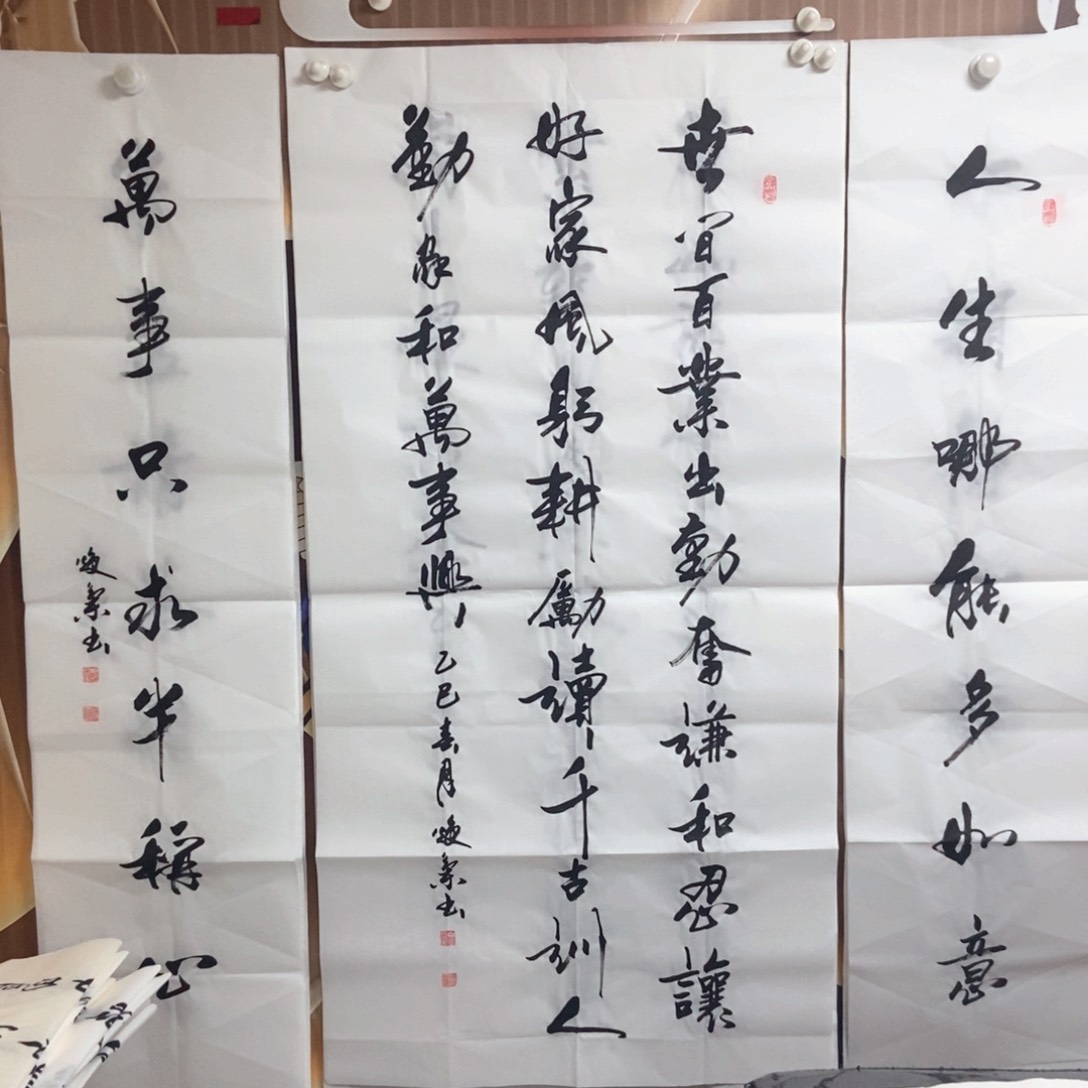 人生哪能多如意
世間百業出勤奮謙和忍讓
好家風躬耕勵讀千古訓人
勤家和萬事興 乙巳春月 煥書
萬事只求半稱心
煥書